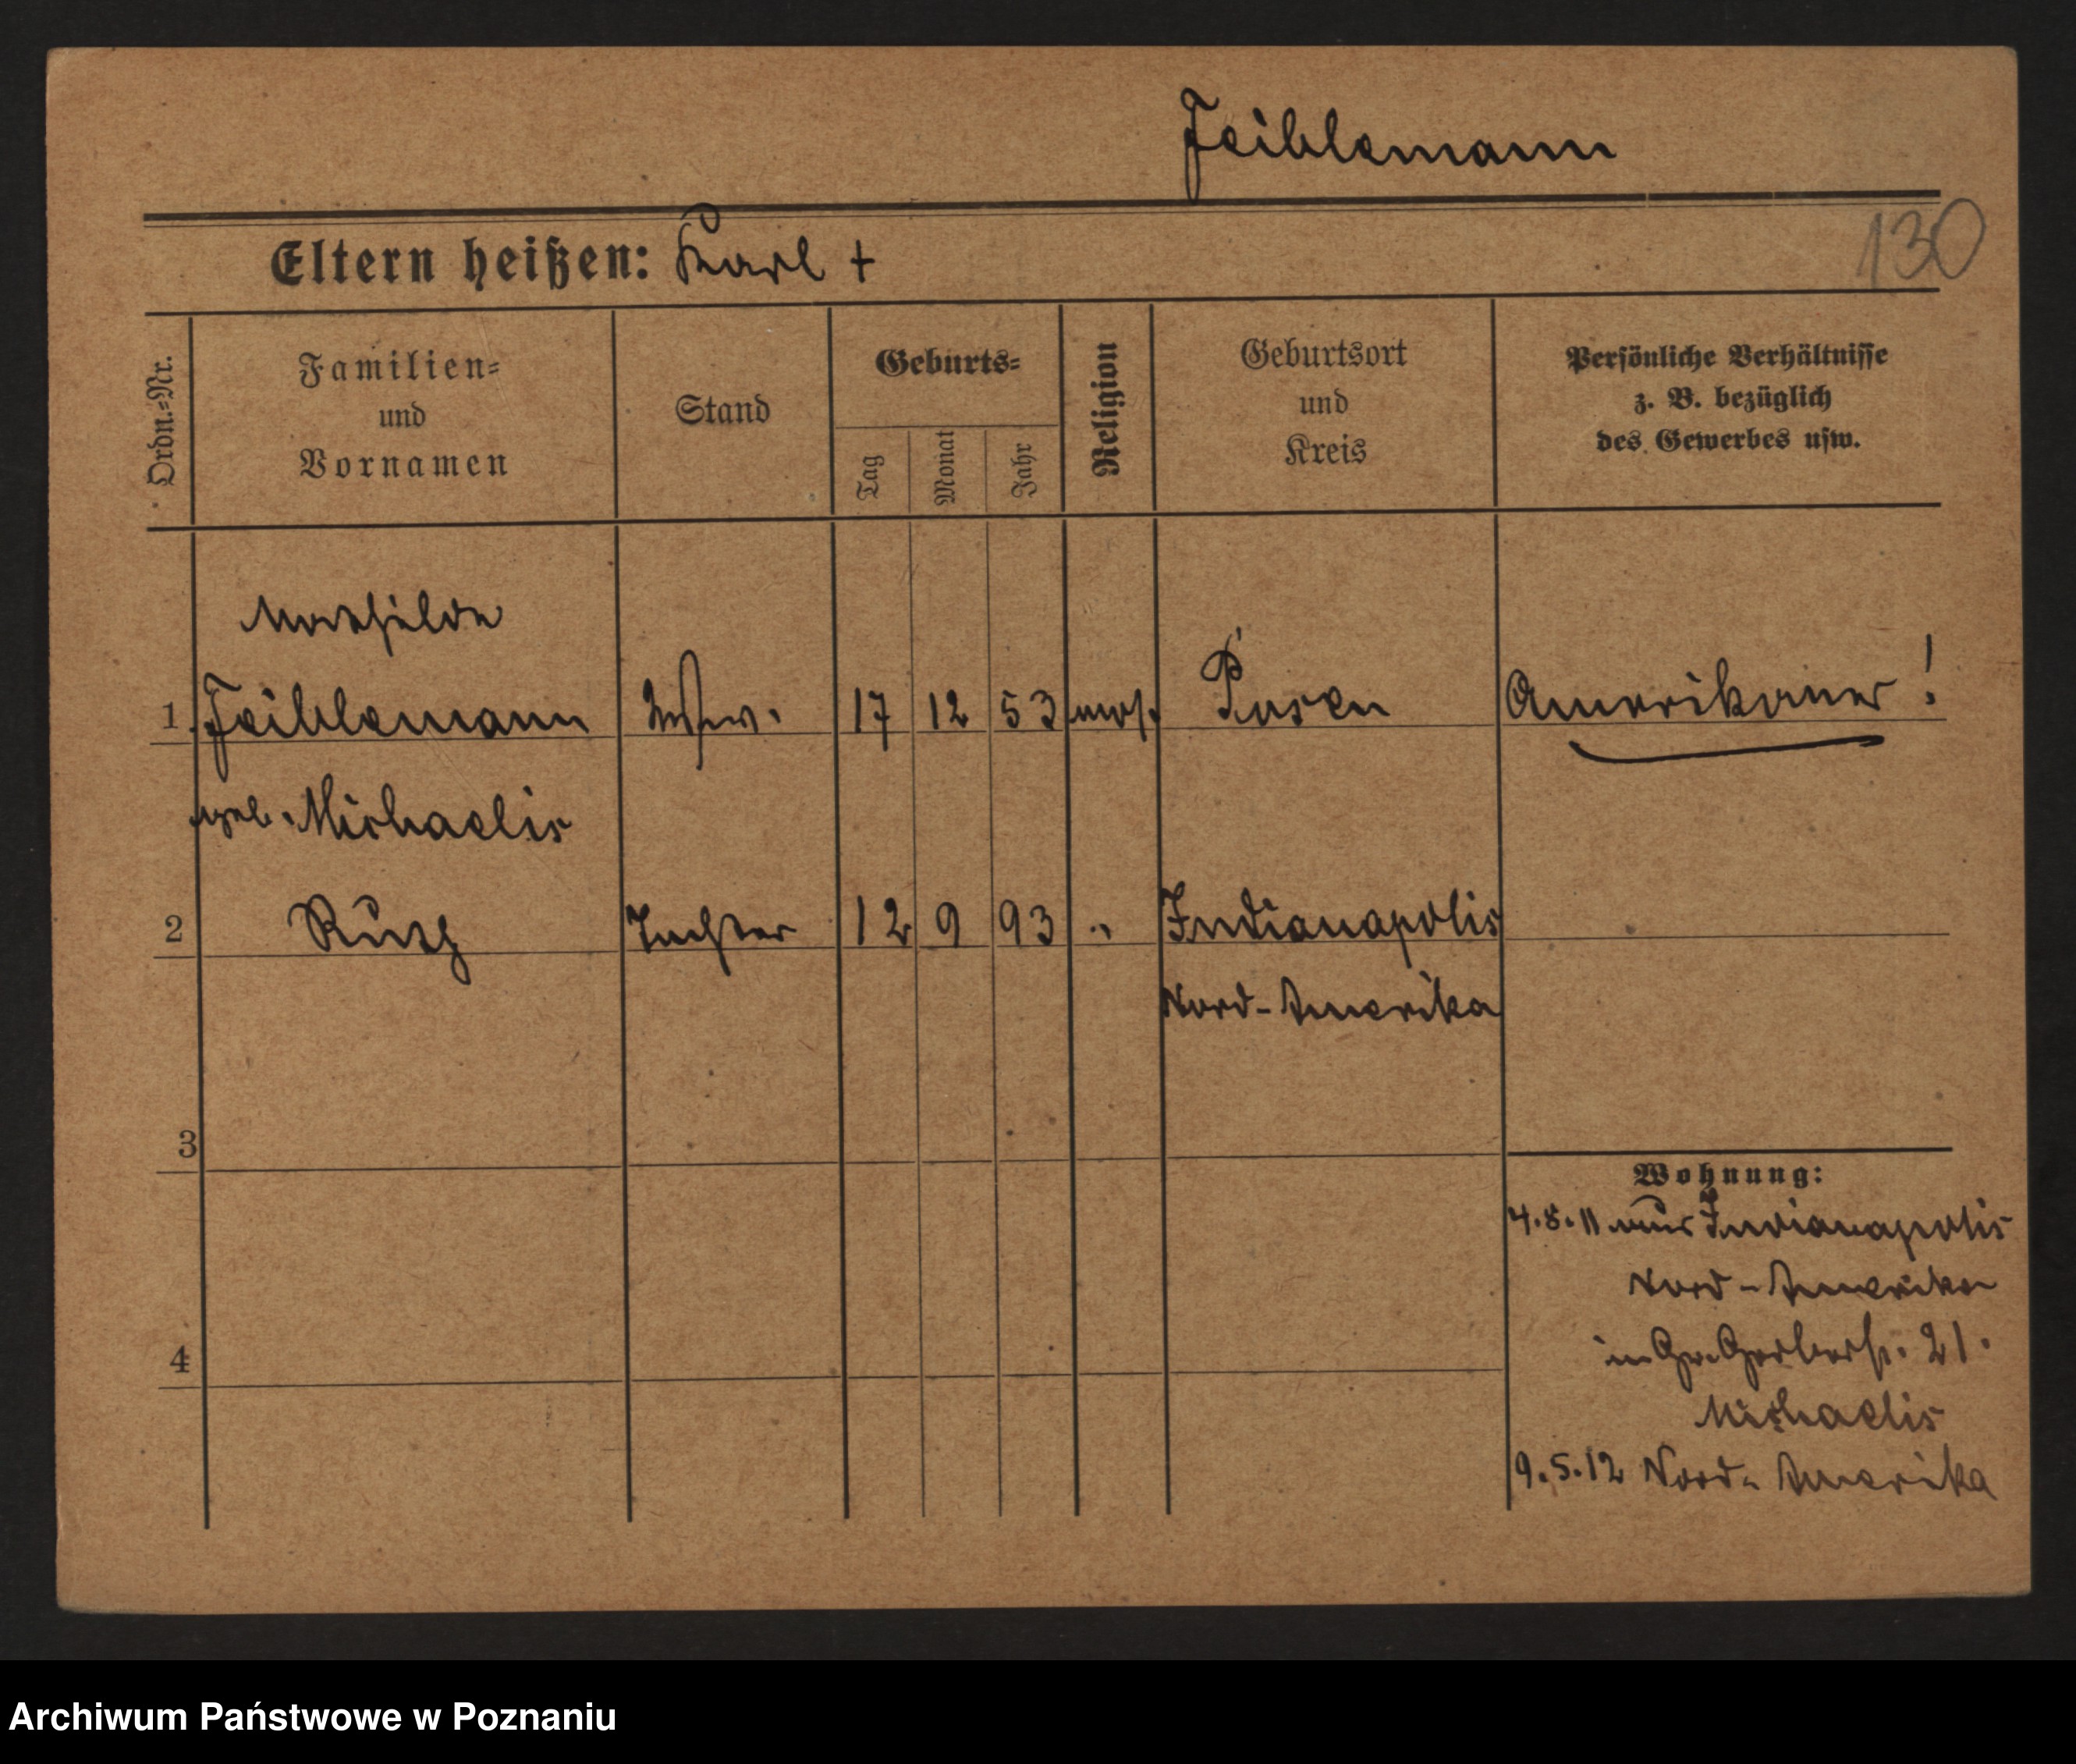 Feiblemann
130
Eltern heißen: Karl +
Ordn.-Nr.
Familien-
und
Vornamen
Stand
Geburts-
Tag
Monat
Jahr
Religion
Geburtsort
und
Kreis
Persönliche Verhältnisse
z. B. bezüglich
des Gewerbes usw.
Mathilde
1. Feiblemann Wtw. 17 12 53 mos. Posen Amerikaner!
geb. Michaelis
2 Ruth Tochter 12 9 93 " Indianapolis
Nord-Amerika
3
Wohnung:
4.8.11 aus Indianapolis
Nord-Amerika
in Gr. Gerberstr. 21.
4
Michaelis
9.5.12 Nord-Amerika
Archiwum Państwowe w Poznaniu